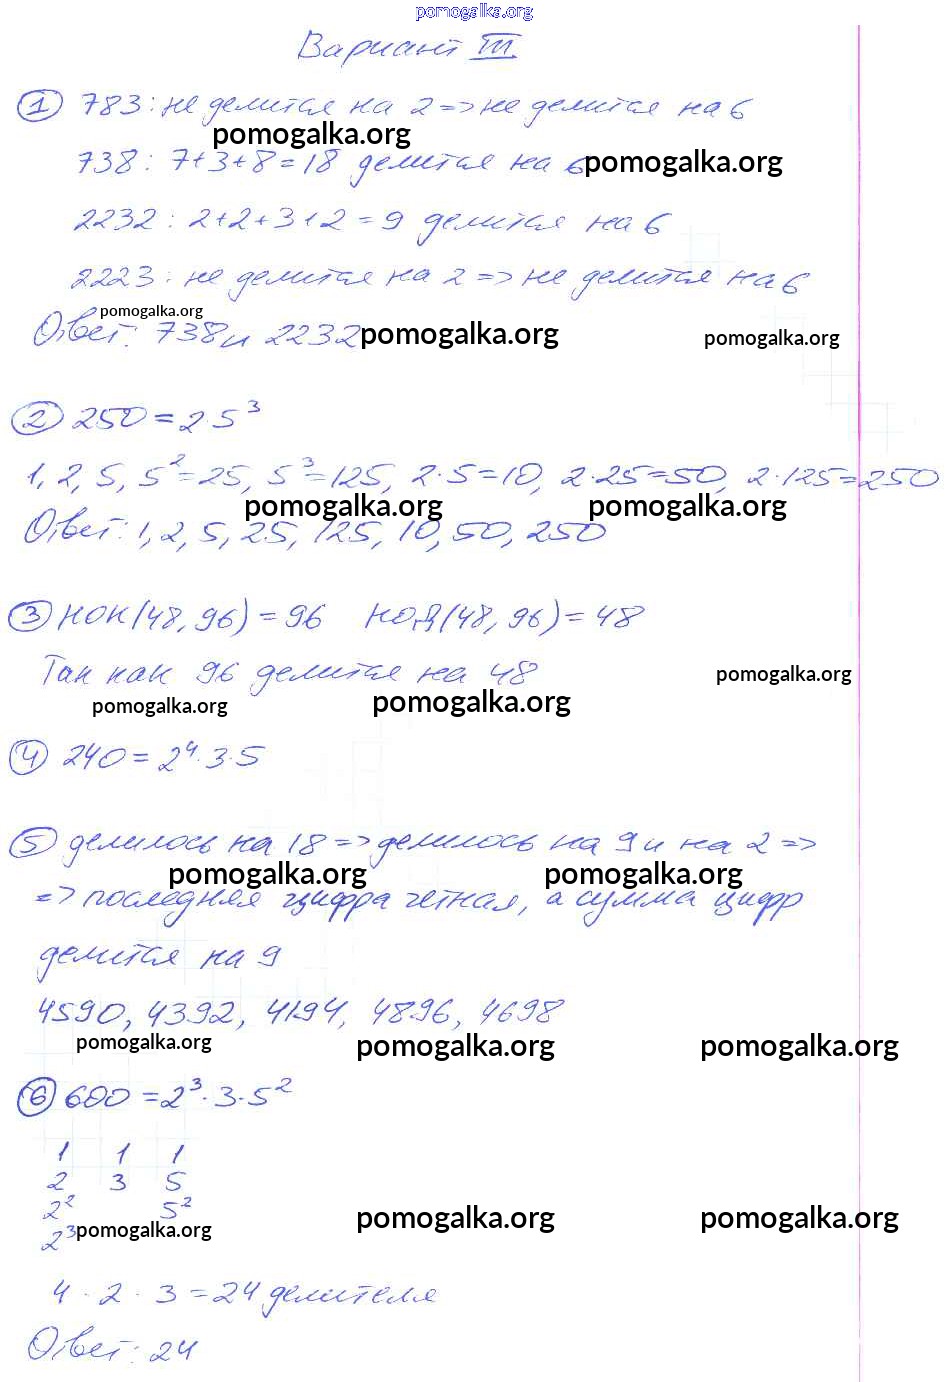 pomogalka.org
Вариант III.
1 783: не делится на 2 => не делится на 6
pomogalka.org
738: 7+3+8=18 делится на 6 pomogalka.org
2232: 2+2+3+2=9 делится на 6
2223: не делится на 2 => не делится на 6
pomogalka.org
Ответ: 738 и 2232 pomogalka.org pomogalka.org
2 250=2·5³
1, 2, 5, 5²=25, 5³=125, 2·5=10, 2·25=50, 2·125=250
pomogalka.org pomogalka.org
Ответ: 1, 2, 5, 25, 125, 10, 50, 250
3 НОК(48, 96)=96 НОД(48, 96)=48
Так как 96 делится на 48 pomogalka.org
pomogalka.org pomogalka.org
4 240=2⁴·3·5
5 делилось на 18 => делилось на 9 и на 2 =>
pomogalka.org pomogalka.org
=> последняя цифра четная, а сумма цифр
делится на 9
4590, 4392, 4194, 4896, 4698
pomogalka.org pomogalka.org pomogalka.org
6 600=2³·3·5²
1 1 1
2 3 5
2² 5²
2³ pomogalka.org pomogalka.org pomogalka.org
4·2·3=24 делителя
Ответ: 24